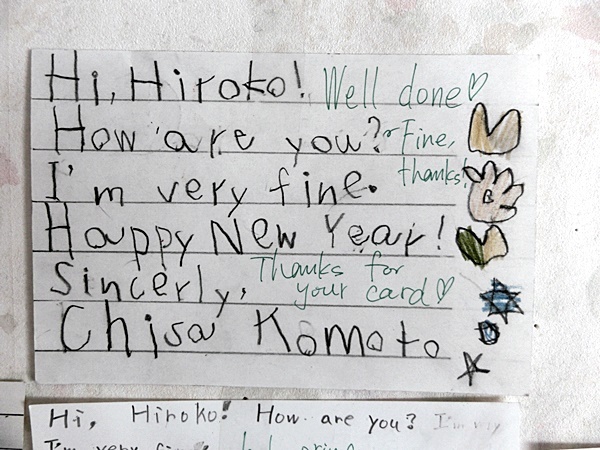 Hi, Hiroko! Well done♡
How are you? Fine,
thanks!
I'm very fine.
B
Happy New Year!
Sincerly, Thanks for
your card♡
Chisa Komoto
Hi, Hiroko! How are you? I'm very
I'm very